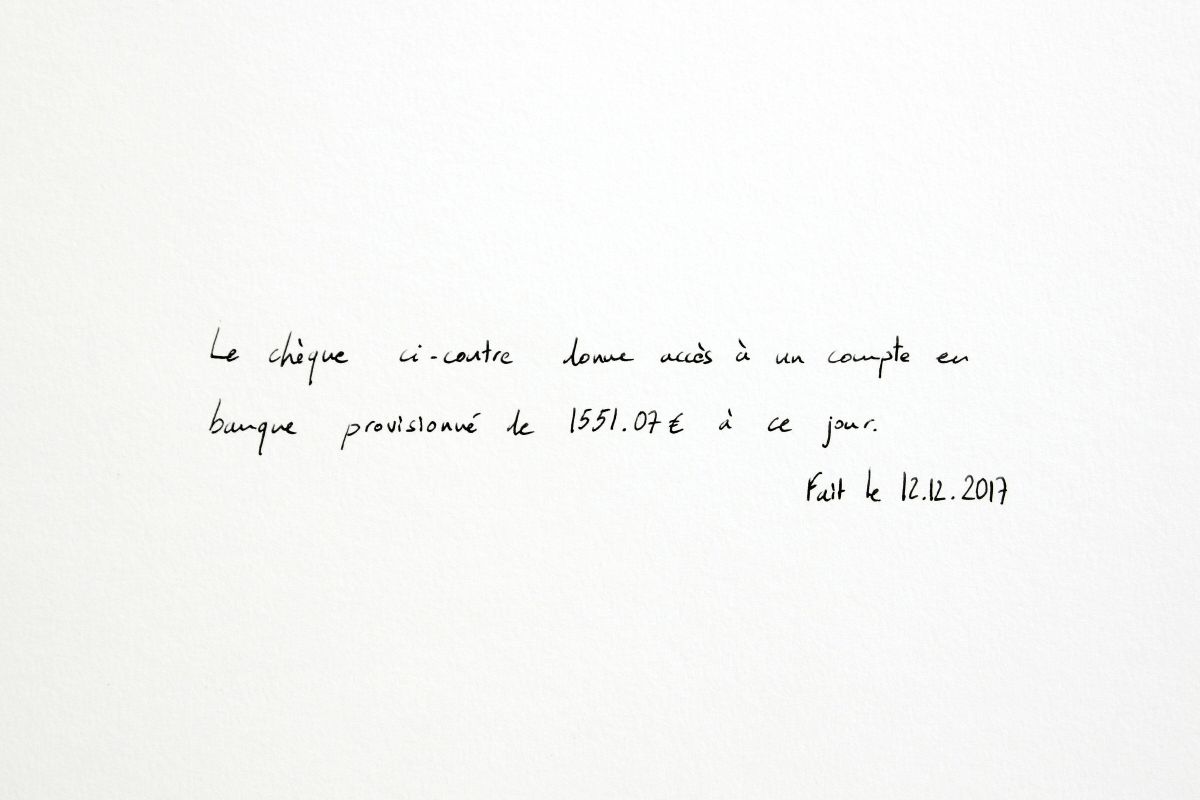 Le chèque ci-contre donne accès à un compte en
banque provisionné de 1551.07€ à ce jour.
Fait le 12.12.2017